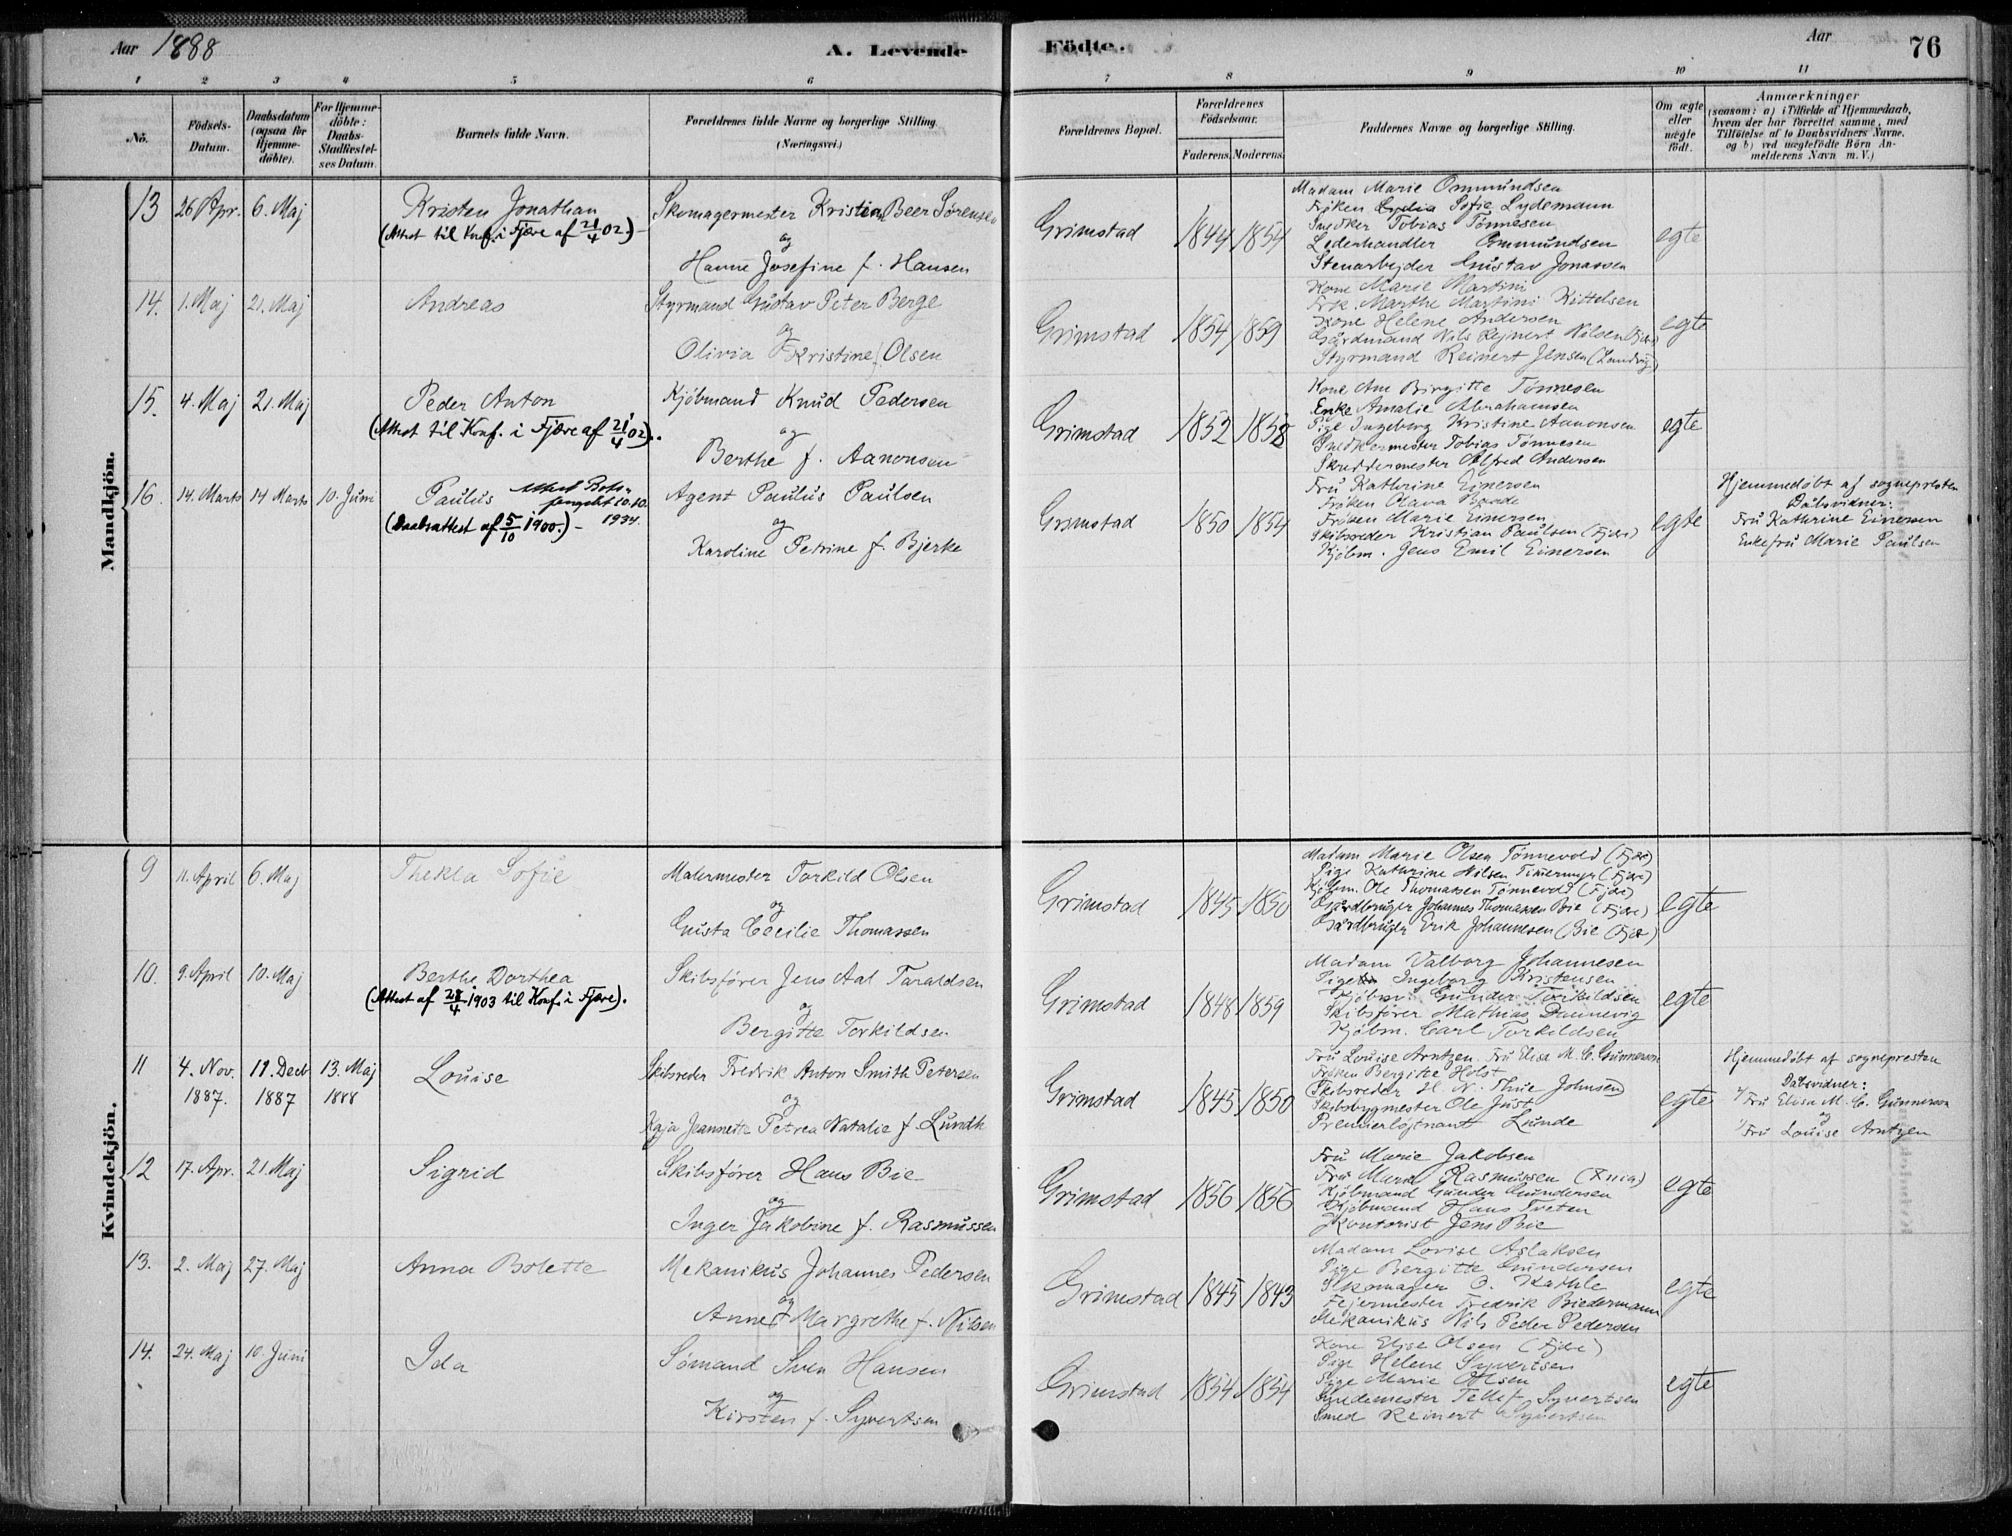 Aar 1888
A. Levende
Födte.
Aar
76
1 2 3 4 5 6 7 8 9 10 11
No.
Födsels-Datum.
Daabsdatum (ogsaa för Hjemme-döbte).
For Hjemme-döbte: Daabs-Stadfæstel-ses Datum.
Barnets fulde Navn.
Forældrenes fulde Navne og borgerlige Stilling. (Næringsvei.)
Forældrenes Bopæl.
Forældrenes Födselsaar.
Faderens. Moderens.
Faddernes Navne og borgerlige Stilling.
Om ægte eller uægte födt.
Anmærkninger
(saasom: a) i Tilfælde af Hjemmedaab, hvem der har forrettet samme, med Tilföielse af to Daabsvidners Navne, og b) ved uægtefödte Börn An-melderens Navn m. V.)
Mandkjön.
13 26 Apr. 6. Maj
Kristen Jonathan
(Attest til Konf. i Fjære af 21/4 02.)
Skomagermester Kristen Beer Sørensen
og
Hanne Josefine f. Hansen
Grimstad 1844 1854
Madam Marie Ommundsen
Frøken Lydia Sofie Lydemann
Snedker Tobias Tønnesen
Læderhandler Ommundsen
Stenarbejder Gustav Jonassen
egte
14. 1. Maj 21. Maj
Andreas
Styrmand Gustav Peter Berge
og
Olivia Kristine Olsen
Grimstad 1854 1859
Kone Marie Martini
Frk. Marthe Martini Kittelsen
Kone Helene Andersen
Gårdmand Nils Rejnert Nilsen (Fjære)
Styrmand Reinert Jensen (Landvig)
egte
15. 4. Maj 21. Maj
Peder Anton
(Attest til Konf. i Fjære af 21/4 02).
Kjøbmand Knud Pedersen
og
Berthe f. Aanonsen
Grimstad 1852 1858
Kone Ane Birgitte Tønnesen
Enke Amalie Abrahamsen
Pige Ingeborg Kristine Aanonsen
Snedkermester Tobias Tønnesen
Skreddermester Alfred Andersen
egte
16. 14. Marts 14 Marts 10. Juni
Paulus
(Daabsattest af 5/10 1900.)
10.10. 1934.
Agent Paulus Paulsen
og
Karoline Petrine f. Bjerke
Grimstad 1850 1854
Fru Kathrine Einersen
Frøken Olava Boode
Frøken Marie Einersen
Skibsreder Kristian Paulsen (Fjære)
Kjøbm. Jens Emil Einersen
egte
Hjemmedøbt af sognepresten
Dåbsvidner:
Fru Kathrine Einersen
Enkefru Marie Paulsen
Kvindekjön.
9 11. April 6. Maj
Thekla Sofie
Malermester Torkild Olsen
og
Gusta Cecilie Thomassen
Grimstad 1845 1850
Madam Marie Olsen Tønnevold (Fjære)
Pige Kathrine Nilsen Timermyr (Fjære)
Kjøbm. Ole Thomassen Tønnevold (Fjære)
Gårdbruger Johannes Thomassen Bie (Fjære)
Gårdbruger Erik Johannesen (Bie Fjære)
egte
10. 9. April 10. Maj
Berthe Dorthea
(Attest af 28/4 1903 til Konf. i Fjære).
Skibsfører Jens Aal Taraldsen
og
Bergitte Torkildsen
Grimstad 1848 1859
Madam Valborg Johannesen
Pige Ingeborg Kristensen
Kjøbm. Gunder Torkildsen
Skibsfører Mathias Dannevig
Kjøbm. Carl Torkildsen
egte
11 4. Nov. 1887. 11. Decb 1887 13. Maj 1888
Louise
Skibsreder Fredrik Anton Smith Petersen
og
Kaja Jeannette Petrea Natalie f. Lundh
Grimstad 1845 1850
Fru Louise Arntzen. Fru Elisa M. C. Gunnerson
Frøken Bergitte Holst
Skibsreder H. N. Thue Johnsen
Skibsbygmester Ole Just
Premierløjtnant Lunde
egte
Hjemmedøbt af sognepresten
Dåbsvidner:
Fru Elisa M. C. Gunnerson
og
Fru Louise Arntzen
12 17. Apr. 21. Maj
Sigrid
Skibsfører Hans Bie
og
Inger Jakobine f. Rasmussen
Grimstad 1856 1856
Fru Marie Jakobsen
Fru Maren Rasmussen
Kjøbmand Gunder Gundersen
Kjøbmand Hans Tveten
Kontorist Jens Bie
egte
13. 2. Maj 27. Maj
Anna Bolette
Mekanikus Johannes Pedersen
og
Anne Margrethe f. Nilsen
Grimstad 1845 1843
Madam Lovise Aslaksen
Pige Bergitte Gundersen
Skomager O. Kathle
Fejermester Fredrik Biedermann
Mekanikus Nils Peder Pedersen
egte
14. 24. Maj 10. Juni
Ida
Sømand Sven Hansen
og
Kirsten f. Syvertsen
Grimstad 1854 1854
Kone Elise Olsen (Fjære)
Pige Helene Syvertsen
Pige Marie Olsen
Smedemester Tellef Syvertsen
Smed Reinert Syvertsen
egte